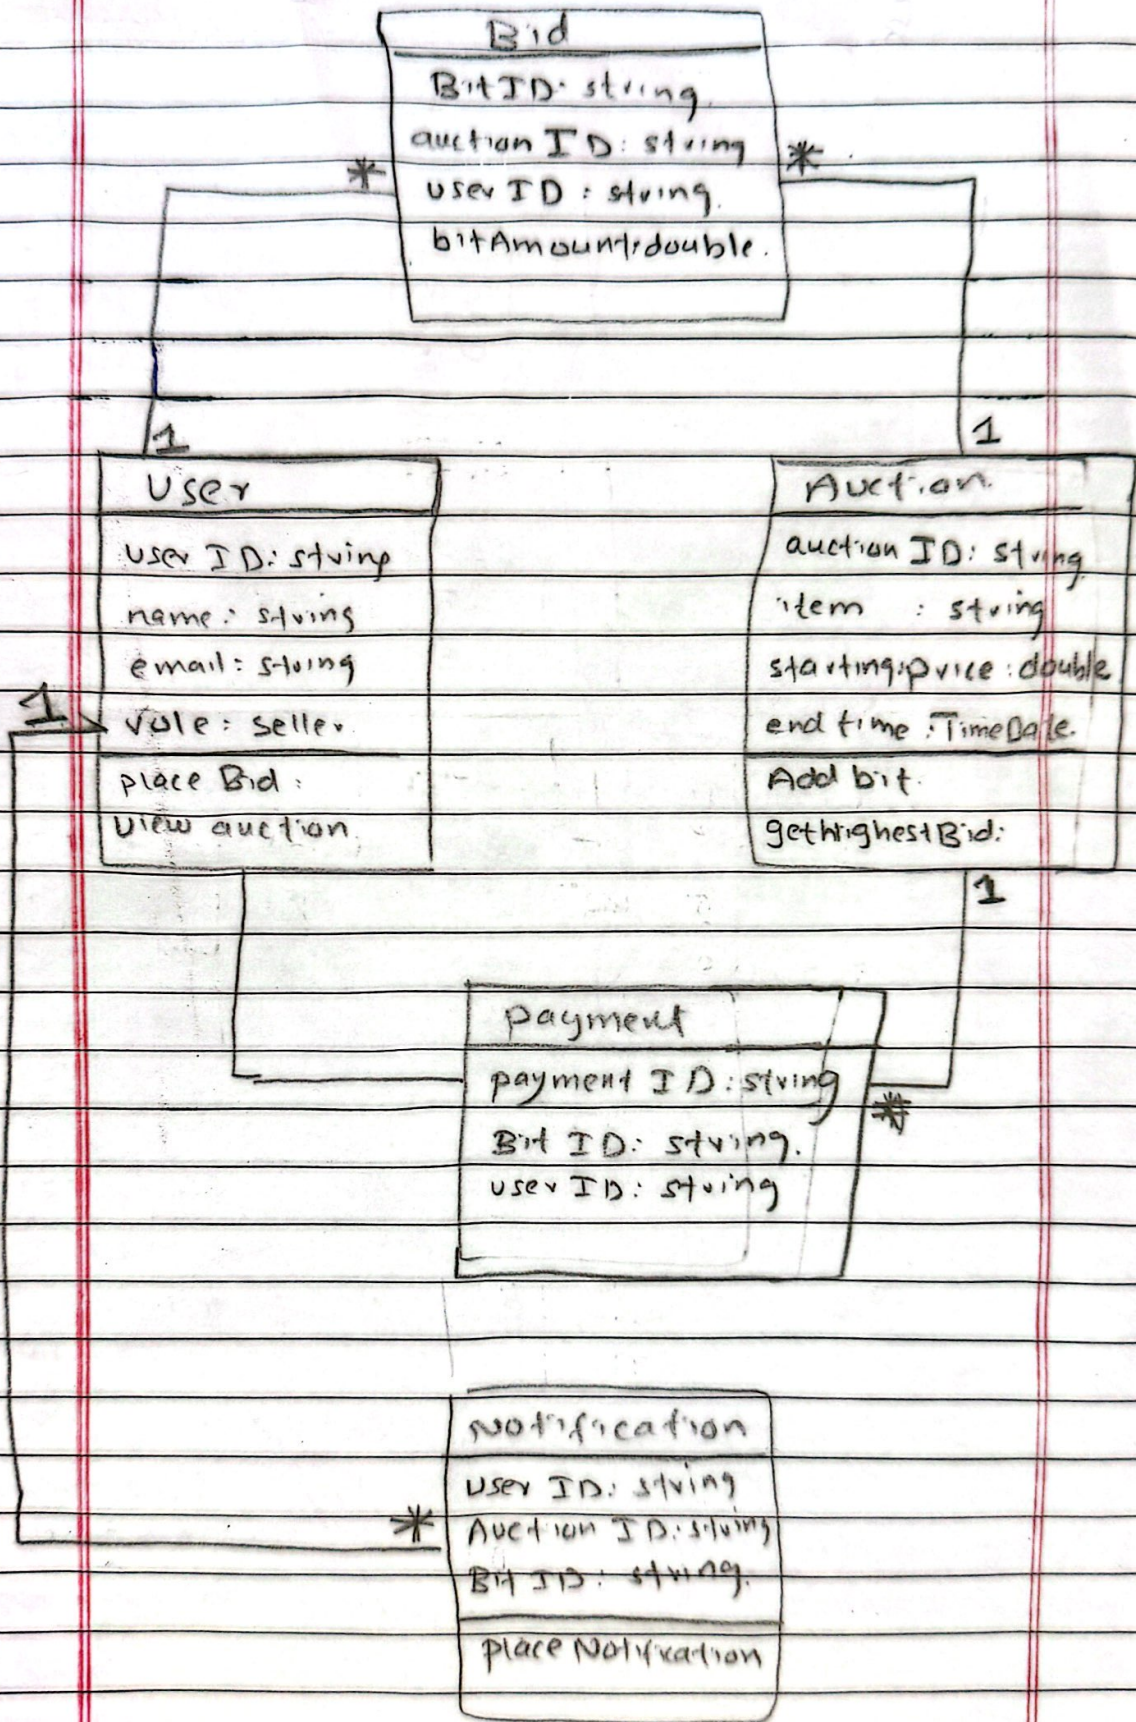 Bid
BitID: string.
auction ID: string
*
*
user ID: string.
bitAmount:double.
1
1
User
user ID: string
name: string
email: string
1
role: seller.
place Bid:
view auction
Auction.
auction ID: string
item : string
starting:price : double
end time : TimeDate.
Add bit.
gethighestBid:
1
payment
payment ID: string
*
Bit ID: string.
user ID: string
Notification
user ID: string
*
Auction ID: string
Bit ID: string.
place Notification